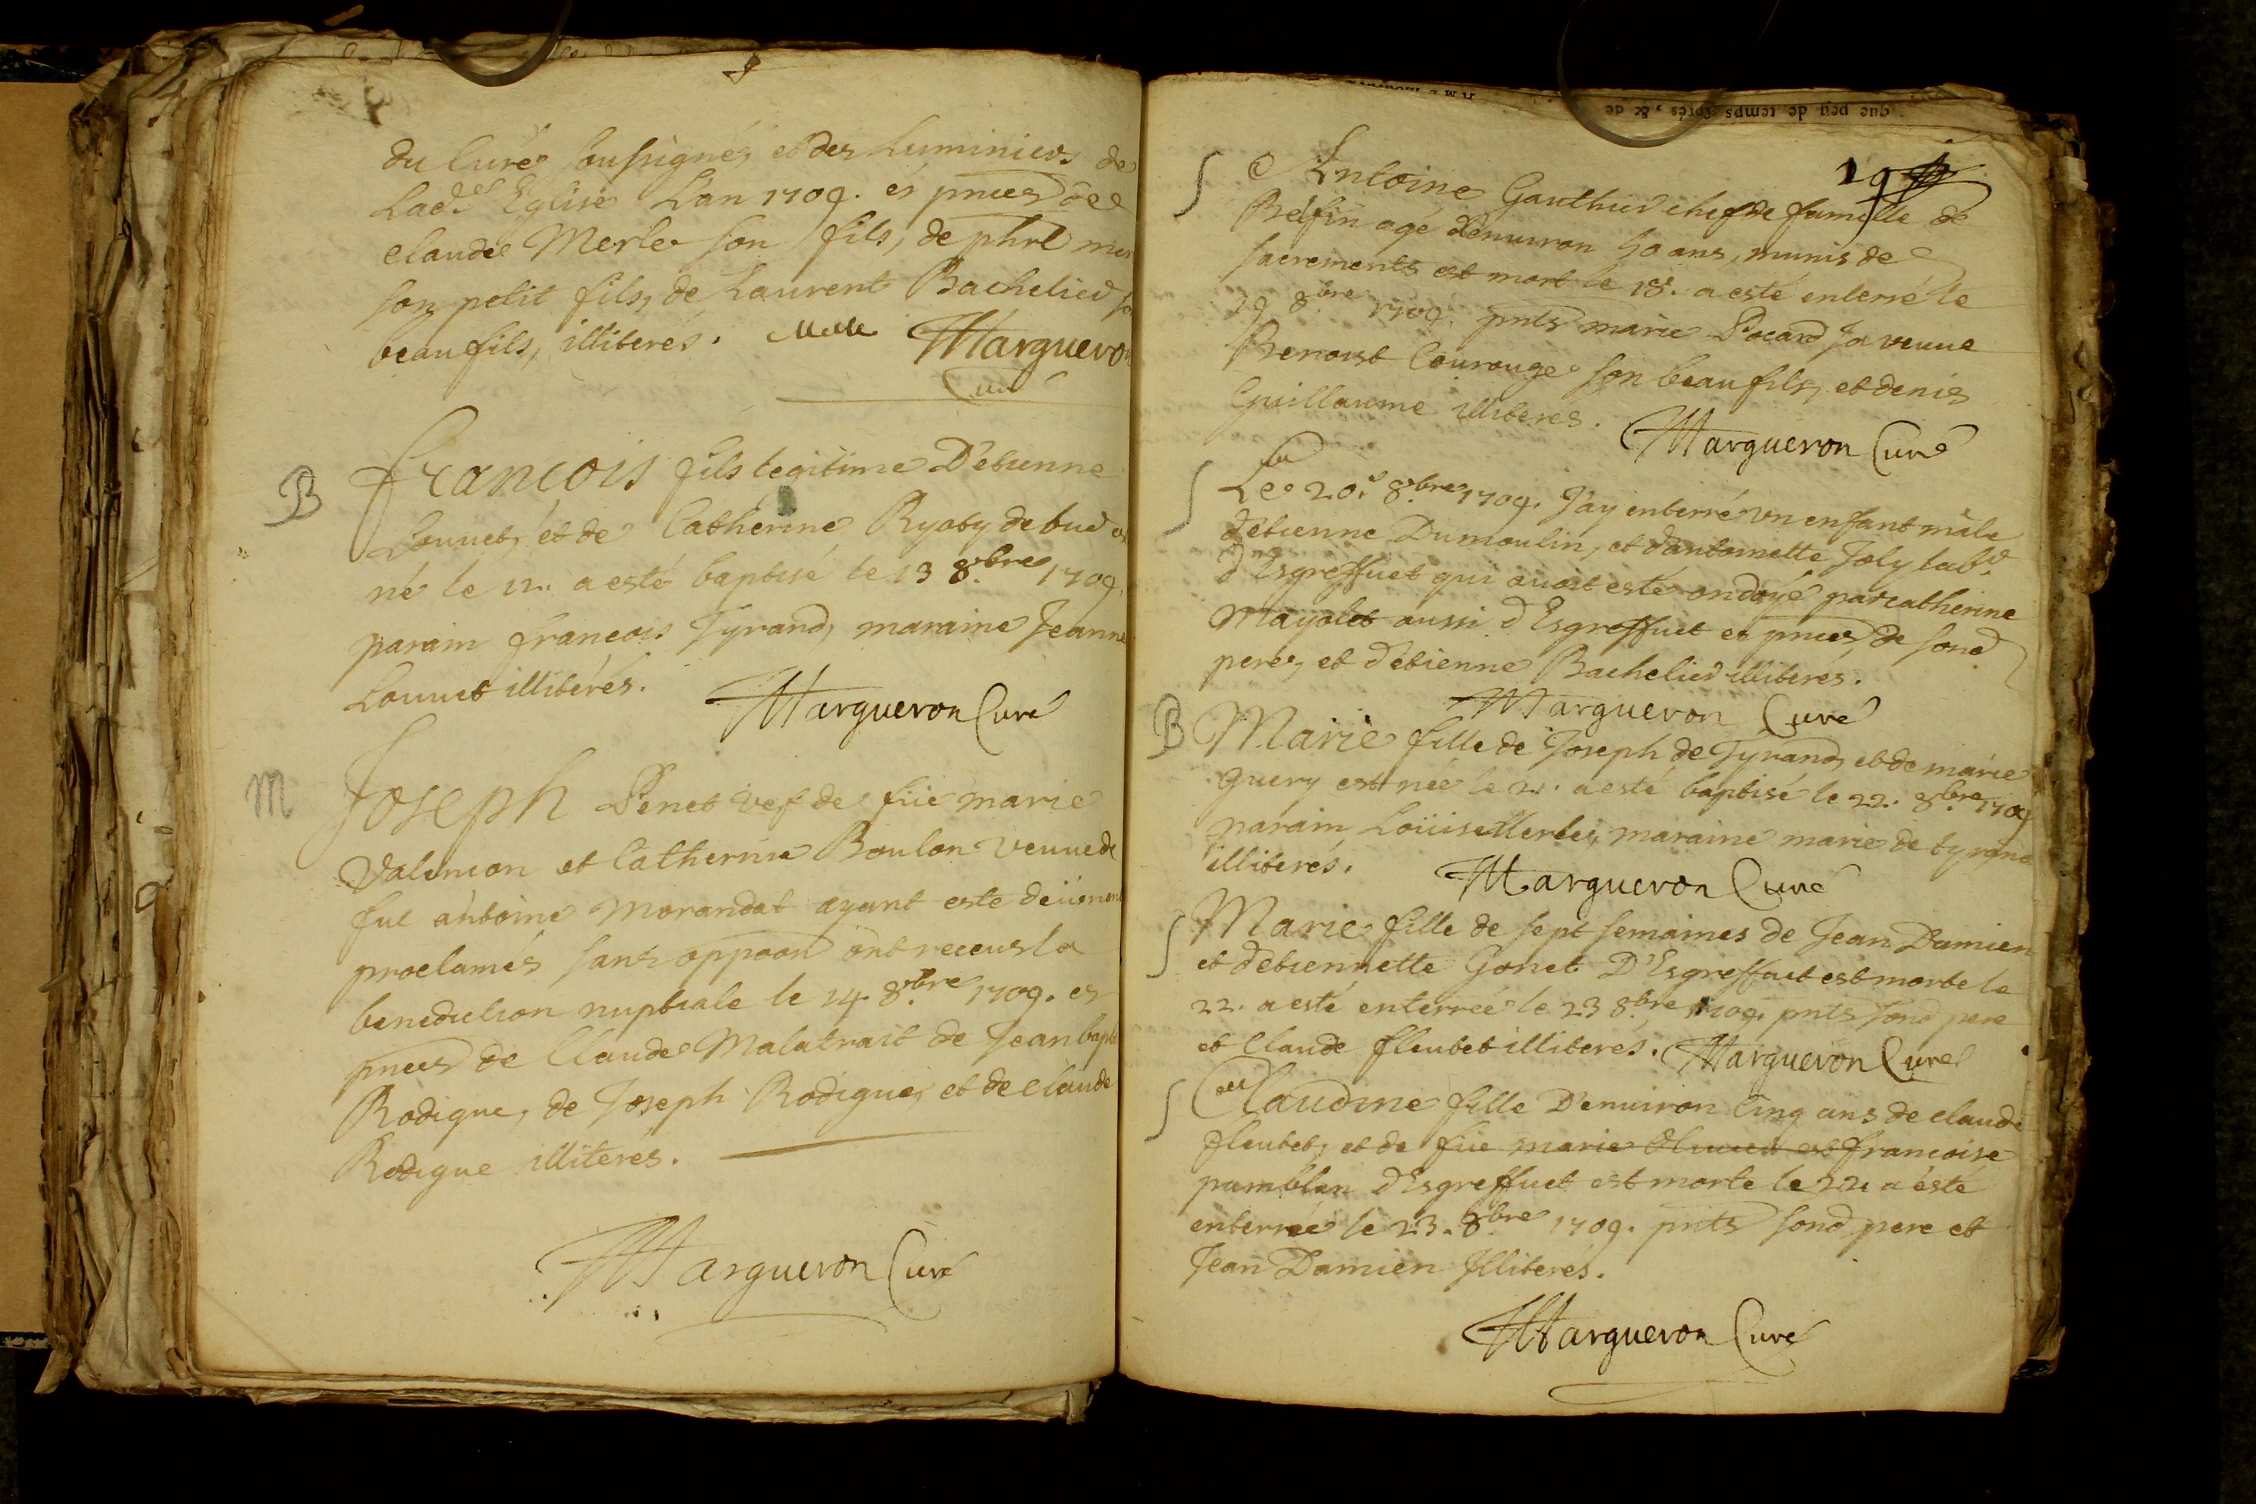 du Curé soussigné, et des Luminiers de
Lad.e Eglise L'an 1709. es pnces de
claude Merle son fils, de phil mer
son petit fils, de Laurent Bachelier so
beaufils, illiterés. Merle Margueron
Curé
B François fils legitime D'etienne
Louuet, et de Catherine Ryoby de bud
né le 12. a esté baptisé le 13 8.bre 1709.
parain francois Tyrand, maraine Jeanne
Louuet illiterés.
Margueron Curé
M Joseph Penet vef de füe marie
Valencon et Catherine Boulon veuue de
fut antoine Morandat ayant este deüement
proclamés sans oppoon ont receus la
benediction nuptiale le 14. 8.bre 1709. es
pnces de Claude Malatrait de Jean bapt
Rodigue, de Joseph Rodigue, et de claude
Rodigue illiterés.
Margueron Curé
que peu de temps & de
19
S Antoine Gauthier chef de famille de
Belfin agé d'enuiron 50 ans, munis de
sacrements est mort le 18. a esté enterré le
19 8.bre 1709. pnts marie Pocard sa veuue
Benoist Courouge son beaufils, et denis
Guillaume illiteres.
Margueron Curé
S Le 20.e 8.bre 1709. J'ay enterré vn enfant mâle
d'etienne Dumoulin, et d'antoinette Joly lab.r
d'Esgreffuet qui auoit esté ondoyé par catherine
Mayolet aussi d'Esgreffuet es pnces de sond
pere, et d'etienne Bachelier illiterés.
Margueron Curé
B Marie fille de Joseph de Tyrand, et de marie
guery est née le 21. a esté baptisé le 22. 8.bre 1709
parain Loüise Merle, maraine marie de tyrand
illiterés.
Margueron Curé
S Marie fille de sept semaines de Jean Damien
et d'etiennette Gonet D'Esgreffuet est morte le
22. a esté enterrée le 23 8.bre 1709. pnts sond pere
et Claude fleutet illiterés. Margueron Curé
S Claudine fille D'enuiron Cinq ans de claude
fleutet, et de füe marie et francoise
pamblan d'Esgreffuet est morte le 22. a esté
enterrée le 23. 8.bre 1709. pnts sond pere et
Jean Damien Illiterés.
Margueron Curé